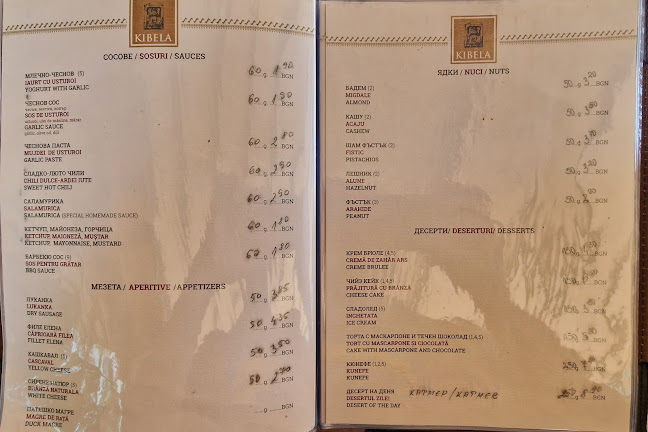 KIBELA
СОСОВЕ / SOSURI / SAUCES
МЛЕЧНО-ЧЕСНОВ (5)
IAURT CU USTUROI
YOGHURT WITH GARLIC
60 g 1.90 BGN
ЧЕСНОВ СОС
SOS DE USTUROI
GARLIC SAUCE
60 g BGN
ЧЕСНОВА ПАСТА
MUJDEI DE USTUROI
GARLIC PASTE
60 g 2.80 BGN
СЛАДКО-ЛЮТО ЧИЛИ
CHILI DULCE-ARDEI IUTE
SWEET HOT CHILI
60 g 2.90 BGN
САЛАМУРИКА
SALAMURICA
SALAMURICA (SPECIAL HOMEMADE SAUCE)
60 g 2.90 BGN
КЕТЧУП, МАЙОНЕЗА, ГОРЧИЦА
KETCHUP, MAIONEZĂ, MUȘTAR
KETCHUP, MAYONNAISE, MUSTARD
60 g 1.80 BGN
БАРБЕКЮ СОС (9)
SOS PENTRU GRĂTAR
BBQ SAUCE
60 g 1.80 BGN
МЕЗЕТА / APERITIVE / APPETIZERS
ЛУКАНКА
LUKANKA
DRY SAUSAGE
50 g BGN
ФИЛЕ ЕЛЕНА
CĂPRIOARĂ FILEA
FILLET ELENA
50 g 4.35 BGN
КАШКАВАЛ (5)
CASCAVAL
YELLOW CHEESE
50 g 3.50 BGN
СИРЕНЕ НАТЮР (5)
BRÂNZĂ NATURALA
WHITE CHEESE
50 g BGN
ПАТЕШКО МАГРЕ
MAGRE DE RAȚĂ
DUCK MAGRE
g BGN
KIBELA
ЯДКИ / NUCI / NUTS
БАДЕМ (2)
MIGDALE
ALMOND
50 g BGN
КАШУ (2)
ACAJU
CASHEW
50 g BGN
ШАМ ФЪСТЪК (2)
FISTIC
PISTACHIOS
50 g BGN
ЛЕШНИК (2)
ALUNE
HAZELNUT
50 g BGN
ФЪСТЪК (2)
ARAHIDE
PEANUT
50 g BGN
ДЕСЕРТИ/ DESERTURI/ DESSERTS
КРЕМ БРЮЛЕ (4,5)
CREMĂ DE ZAHĂR ARS
CREME BRULEE
BGN
ЧИЙЗ КЕЙК (1,4,5)
PRĂJITURĂ CU BRÂNZĂ
CHEESE CAKE
BGN
СЛАДОЛЕД (5)
INGHETATA
ICE CREAM
BGN
ТОРТА С МАСКАРПОНЕ И ТЕЧЕН ШОКОЛАД (1,4,5)
TORT CU MASCARPONE SI CIOCOLATĂ
CAKE WITH MASCARPONE AND CHOCOLATE
BGN
КЮНЕФЕ (1,2,5)
KUNEFE
KUNEFE
BGN
ДЕСЕРТ НА ДЕНЯ
DESERTUL ZILEI
DESERT OF THE DAY
КАТМЕР / KATMER
BGN